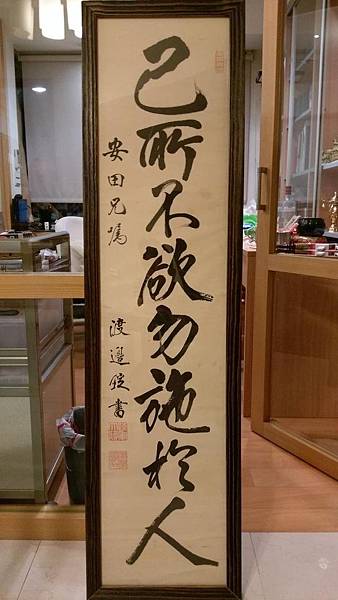 己所不欲勿施於人
安田兄囑
渡邊 書